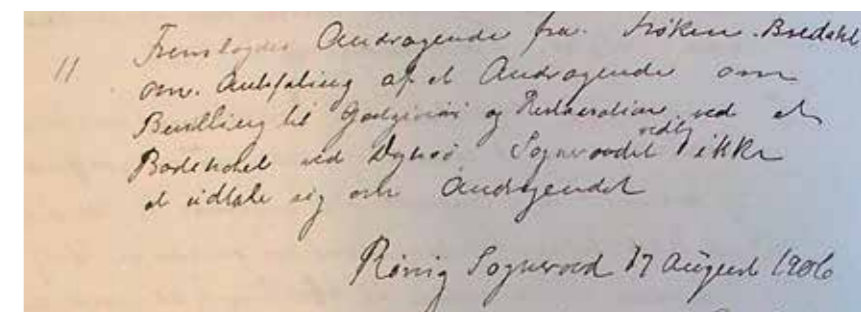 11 Fremlagdes Andragende fra Frøken Bredahl
om Anbefaling af et Andragende om
Bevilling til Gæstgiveri og Restauration ved et
Badehotel ved Dyngsø. Sognerådet vedtog ikke
at udtale sig om Andragendet
Rønvig Sogneraad 17 August 1906